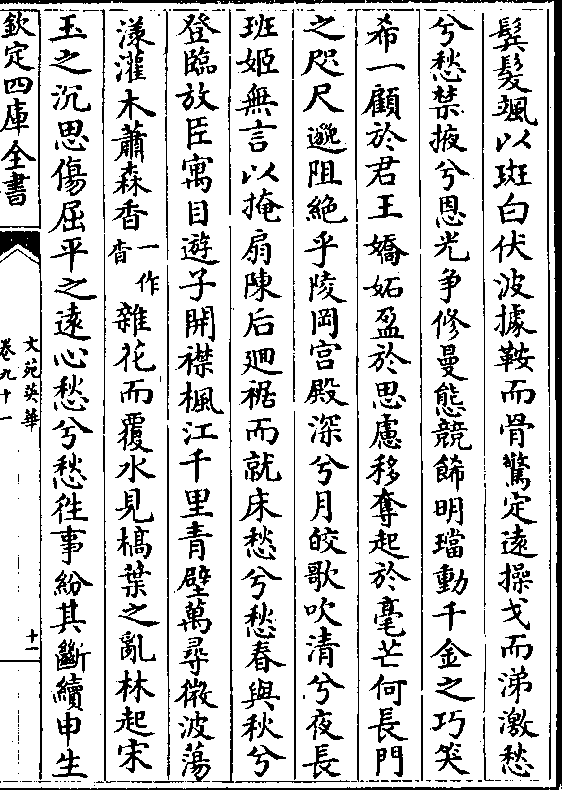 鬂髮颯以斑白伏波據鞍而骨驚定遠操戈而涕激愁
兮愁禁掖兮恩光争修曼態競餙明璫動千金之巧笑
希一顧於君王嬌妬盈於思慮移奪起於毫芒何長門
之咫尺邈阻絶乎陵岡宫殿深兮月皎歌吹清兮夜長
班姬無言以掩扇陳后廻裾而就床愁兮愁春與秋兮
登臨放臣寓目遊子開襟楓江千里青壁萬尋微波蕩
漾灌木蕭森香一作杳雜花而覆水見槁葉之亂林起宋
玉之沉思傷屈平之遠心愁兮愁徃事紛其斷續申生
欽定四庫全書
文苑英華
卷九十一
十一